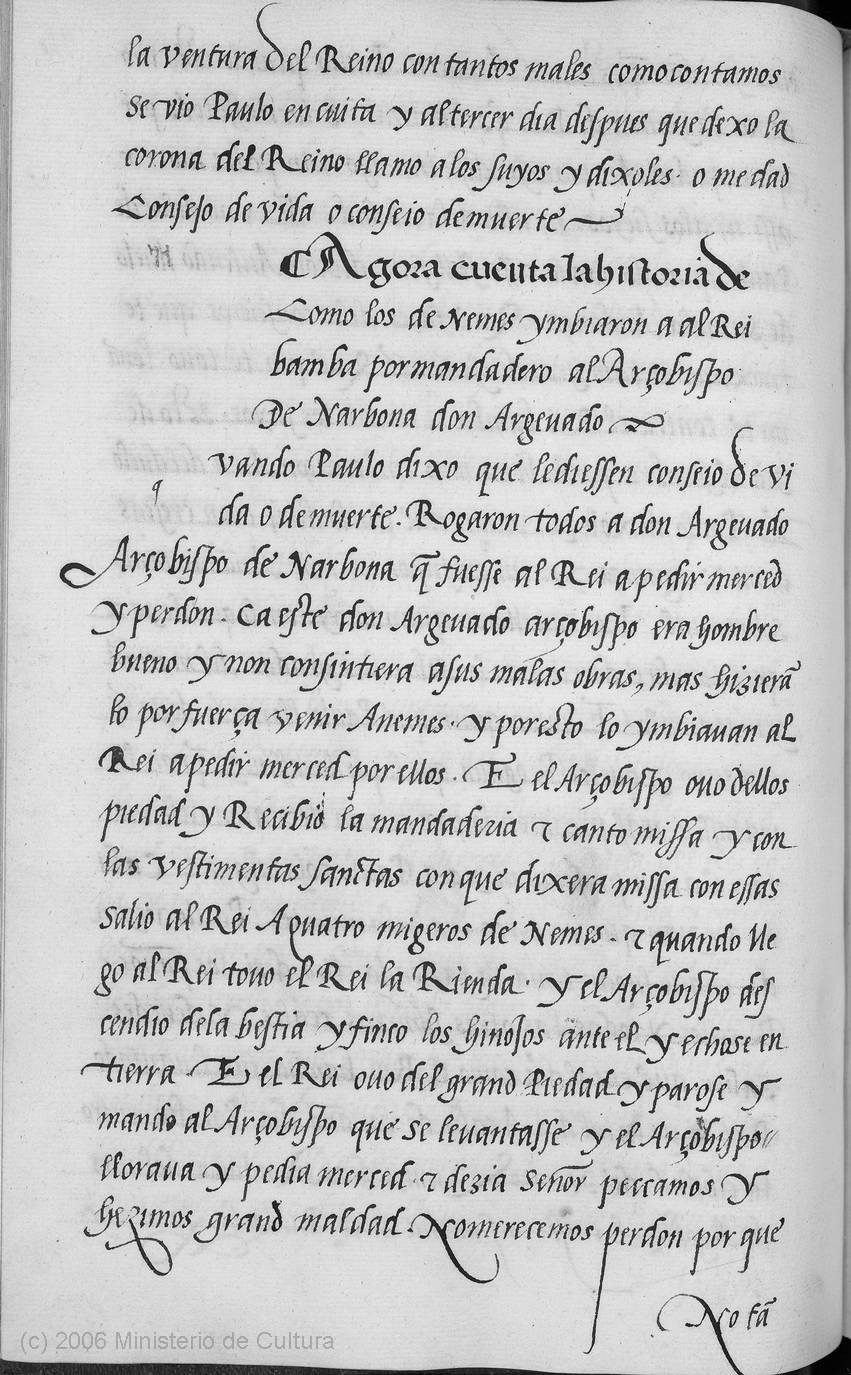 la ventura del Reino con tantos males como contamos
se vio Paulo en cuita y al tercer dia despues que dexo la
corona del Reino llamo a los suyos y dixoles. o me dad
Consejo de vida o conseio de muerte
¶ Agora cuenta la historia de
Como los de Nemes ymbiaron a al Rei
bamba por mandadero al Arçobispo
De Narbona don Argevado
q vando Paulo dixo que le diessen conseio de vi
da o de muerte. Rogaron todos a don Argevado
Arçobispo de Narbona q̃ fuesse al Rei a pedir merced
y perdon. Ca este don Argevado arçobispo era hombre
bueno y non consintiera a sus malas obras, mas hizierã
lo por fuerça venir A nemes. y por esto lo ymbiavan al
Rei a pedir merced por ellos. E el Arçobispo ovo dellos
piedad y Recibio la mandaderia τ canto missa y con
las vestimentas sanctas con que dixera missa con essas
salio al Rei A quatro migeros de Nemes. τ quando lle
go al Rei tovo el Rei la Rienda. y el Arçobispo des
cendio de la bestia y finco los hinojos ante el y echose en
tierra. E el Rei ovo del grand Piedad y parose y
mando al Arçobispo que se levantasse y el Arçobispo
llorava y pedia merced. τ dezia señor peccamos y
hezimos grand maldad. No merecemos perdon por que
No fã
(c) 2006 Ministerio de Cultura